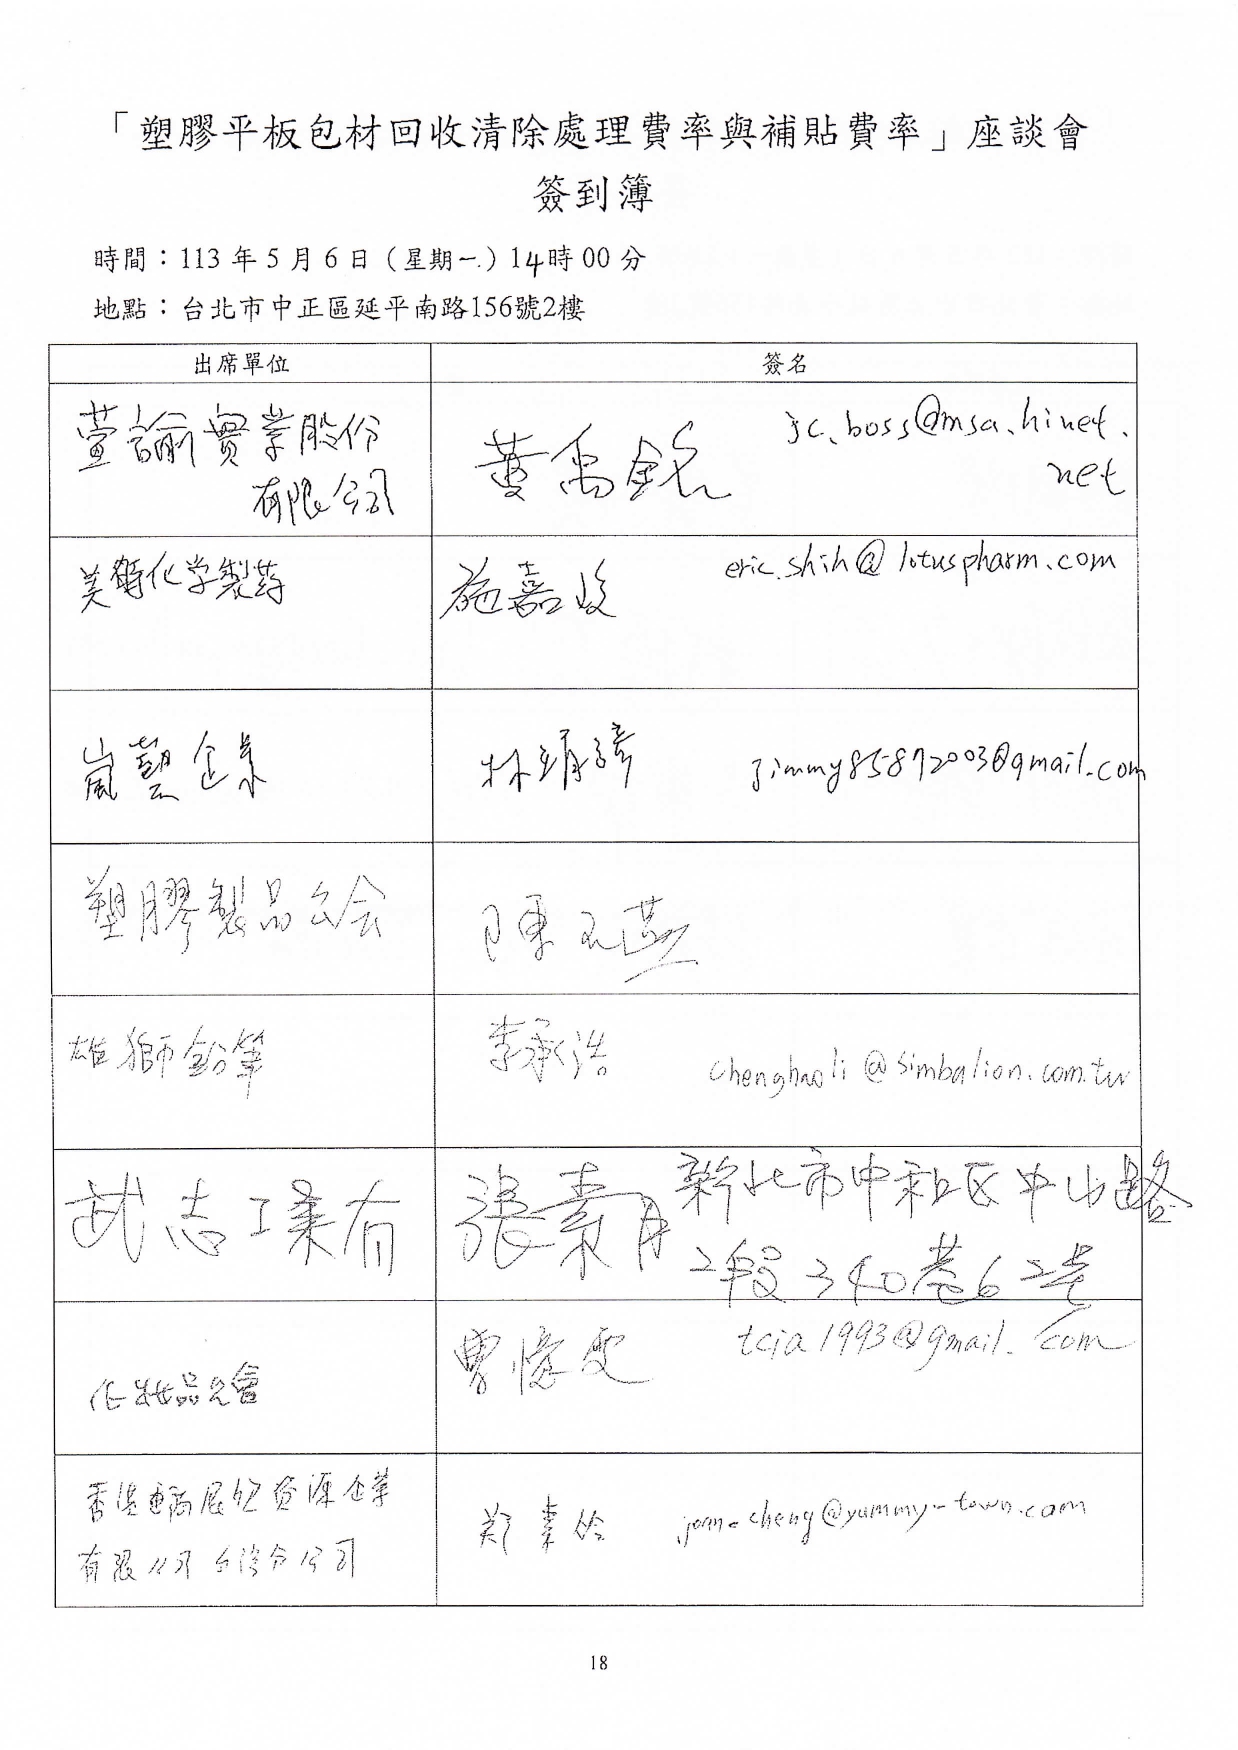 「塑膠平板包材回收清除處理費率與補貼費率」座談會
簽到簿
時間：113 年 5 月 6 日（星期一）14時 00 分
地點：台北市中正區延平南路156號2樓
出席單位
簽名
萱諭實業股份
有限公司
黃禹銳
jc.boss@msa.hinet.
net
美時化学製葯
施嘉
eric.shih@lotuspharm.com
嵐藝企業
林靖
jimmy85872003@gmail.com
塑膠製品公会
陳玉燕
雄獅鉛筆
李承浩
chenghaoli@simbalion.com.tw
武志工業有
張素月
新北市中和区中山路
2段340巷62号
化粧品公會
曹憶雯
tcia1993@gmail.com
香港商展欣資源企業
有限公司台灣分公司
鄭素
cheng@yummy-town.com
18